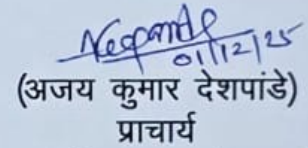 01/12/25
(अजय कुमार देशपांडे)
प्राचार्य